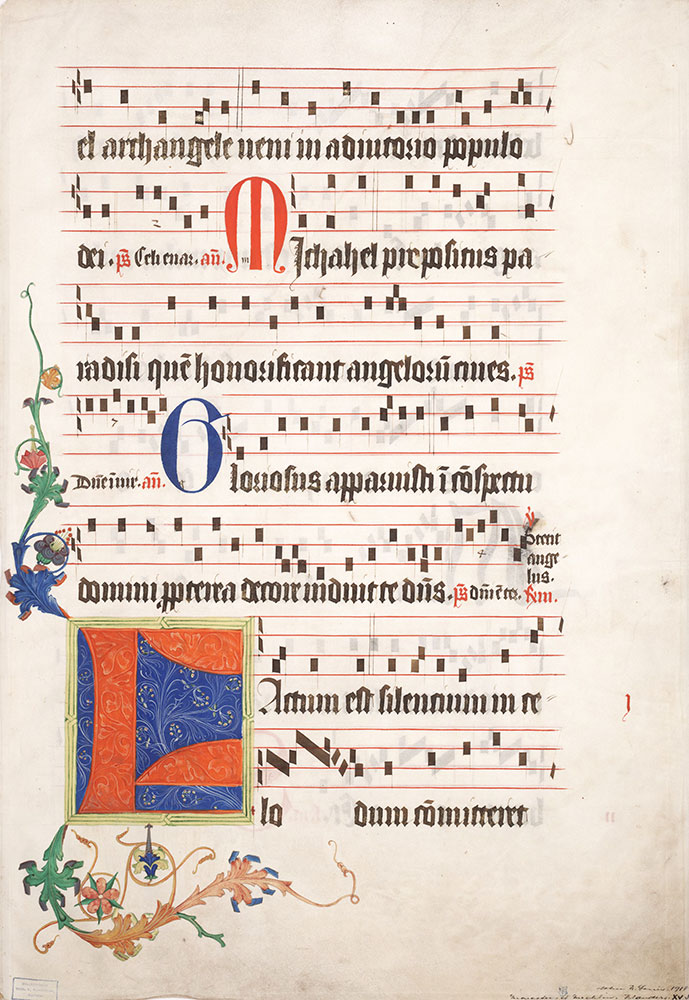 el archangele veni in adiutorio populo
dei. ps Celi enar. añ. m Michahel prepositus pa
radisi quē honorificant angelorū cives. ps
Dñe i vir. añ. Gloriosus apparuisti ī cōspectu
domini, ppterea decore induit te dñs. ps dñi ē t̄ra. R̄m.
℣ Stetit
ange
lus.
Factum est silencium in ce
lo dum cōmitteret